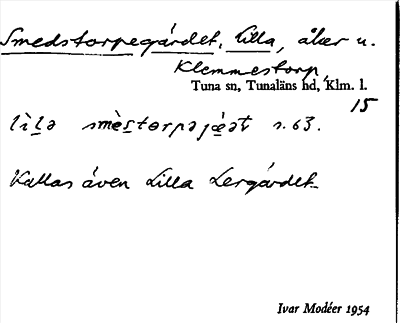 Smedstorpegärdet, Lilla, åker u.
Klemmestorp,
Tuna sn, Tunaläns hd, Klm. l.
15
lìlə smèstorpəjæ̀ət s. 63.
Kallas även Lilla Lergärdet.
Ivar Modéer 1954